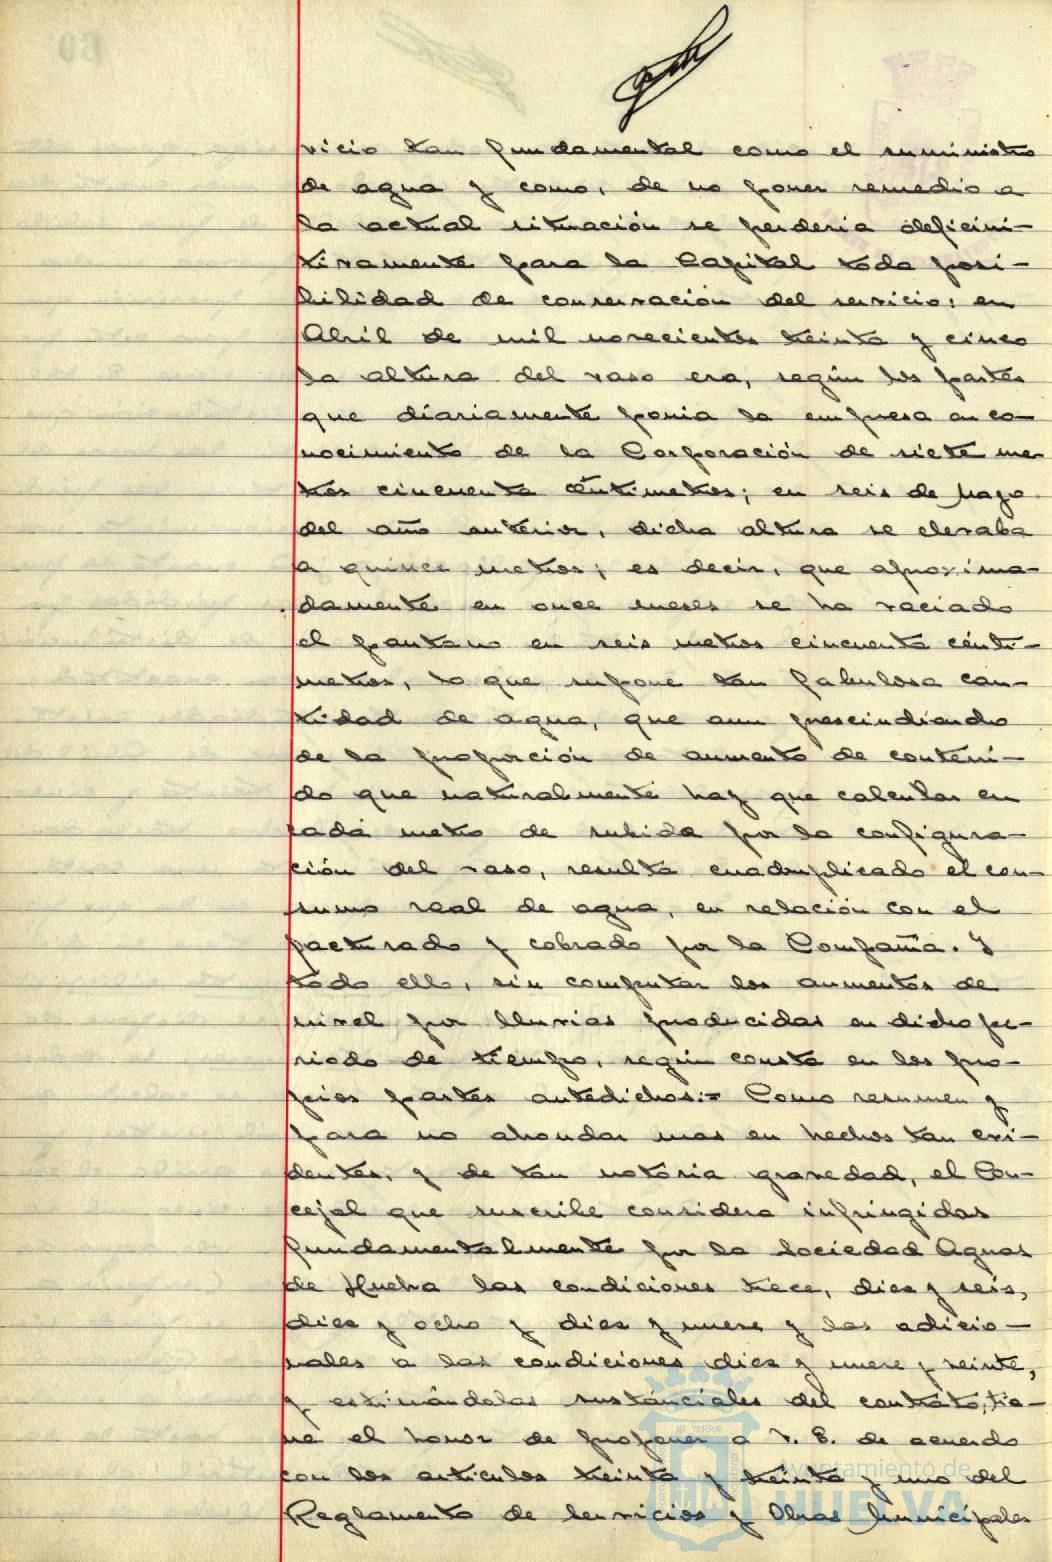 vicio tan fundamental como el suministro
de agua y como, de no poner remedio a
la actual situación se perderia deficini-
tivamente para la Capital toda posi-
bilidad de conservación del servicio: en
Abril de mil novecientos treinta y cinco
la altura del vaso era, según los partes
que diariamente ponia la empresa en co-
nocimiento de la Corporación de siete me-
tros cincuenta céntimetros; en seis de Mayo
del año anterior, dicha altura se elevaba
a quince metros; es decir, que aproxima-
damente en once meses se ha vaciado
el pantano en seis metros cincuenta cénti-
metros, lo que supone tan fabulosa can-
tidad de agua, que aun prescindiendo
de la proporción de aumento de conteni-
do que naturalmente hay que calcular en
cada metro de subida por la configura-
ción del vaso, resulta cuadruplicado el con-
sumo real de agua, en relación con el
facturado y cobrado por la Compañia. Y
todo ello, sin computar los aumentos de
nivel por lluvias producidas en dicho pe-
riodo de tiempo, según consta en los pro-
pios partes antedichos:= Como resumen y
para no ahondar mas en hechos tan evi-
dentes, y de tan notoria gravedad, el Con-
cejal que suscribe considera infringidas
fundamentalmente por la Sociedad Aguas
de Huelva las condiciones trece, diez y seis,
diez y ocho y diez y nueve y las adicio-
nales a las condiciones diez y nueve y veinte,
y estimándolas sustánciales del contrato, tie-
ne el honor de proponer a V. E. de acuerdo
con los articulos treinta y treinta y uno del
Reglamento de Servicios y Obras Municipales
Ayuntamiento de
HUELVA